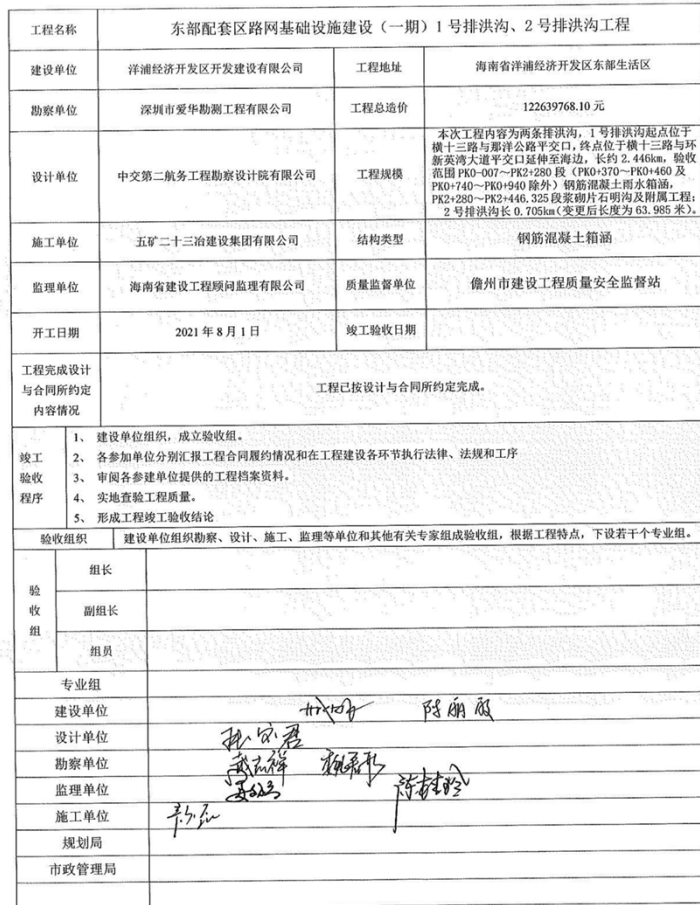 工程名称 东部配套区路网基础设施建设（一期）1号排洪沟、2号排洪沟工程
建设单位 洋浦经济开发区开发建设有限公司 工程地址 海南省洋浦经济开发区东部生活区
勘察单位 深圳市爱华勘测工程有限公司 工程总造价 122639768.10元
设计单位 中交第二航务工程勘察设计院有限公司 工程规模
本次工程内容为两条排洪沟，1号排洪沟起点位于
横十三路与那洋公路平交口，终点位于横十三路与环
新英湾大道平交口延伸至海边，长约2.446km，验收
范围PK0-007～PK2+280段（PK0+370～PK0+460及
PK0+740～PK0+940除外）钢筋混凝土雨水箱涵，
PK2+280～PK2+446.325段浆砌片石明沟及附属工程；
2号排洪沟长0.705km（变更后长度为63.985米）。
施工单位 五矿二十三冶建设集团有限公司 结构类型 钢筋混凝土箱涵
监理单位 海南省建设工程顾问监理有限公司 质量监督单位 儋州市建设工程质量安全监督站
开工日期 2021年8月1日 竣工验收日期
工程完成设计
与合同所约定
内容情况
工程已按设计与合同所约定完成。
竣工
验收
程序
1、 建设单位组织，成立验收组。
2、 各参加单位分别汇报工程合同履约情况和在工程建设各环节执行法律、法规和工序
3、 审阅各参建单位提供的工程档案资料。
4、 实地查验工程质量。
5、 形成工程竣工验收结论
验收组织 建设单位组织勘察、设计、施工、监理等单位和其他有关专家组成验收组，根据工程特点，下设若干个专业组。
验
收
组
组长
副组长
组员
专业组
建设单位
设计单位
勘察单位
监理单位
施工单位
规划局
市政管理局